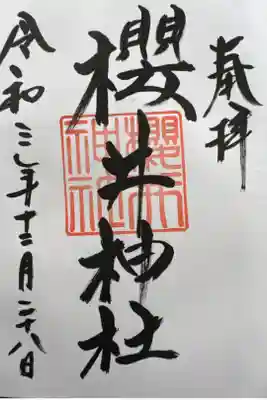 奉拝
櫻井神社
櫻井神社
令和三年十二月二十八日